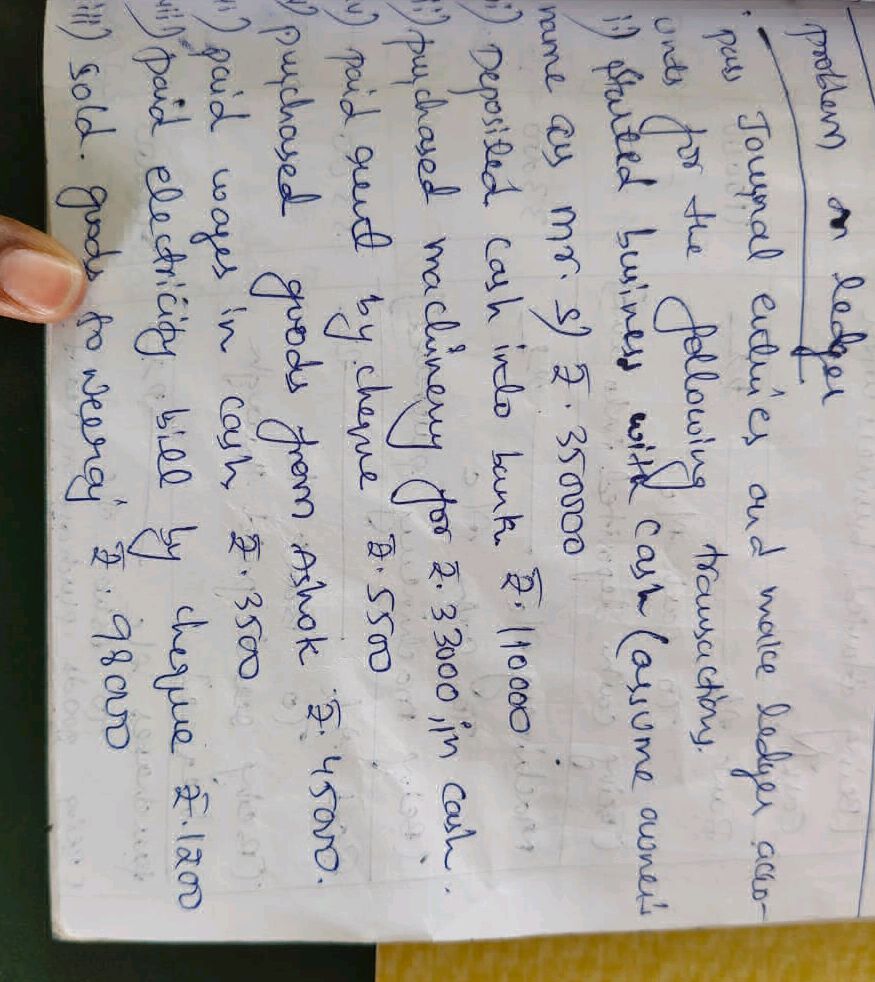 problem on ledger
pass Journal entries and make ledger acco-
unts for the following transactions.
i) Started business with cash (assume owner's
name as Mr. S) ₹. 350000
ii) Deposited cash into bank ₹. 110000
iii) purchased machinery for ₹. 33000, in cash.
iv) paid rent by cheque ₹. 5500
v) purchased goods from Ashok ₹. 45000.
vi) paid wages in cash ₹. 3500
vii) paid electricity bill by cheque ₹. 1200
viii) sold goods to Neeraj ₹. 98000